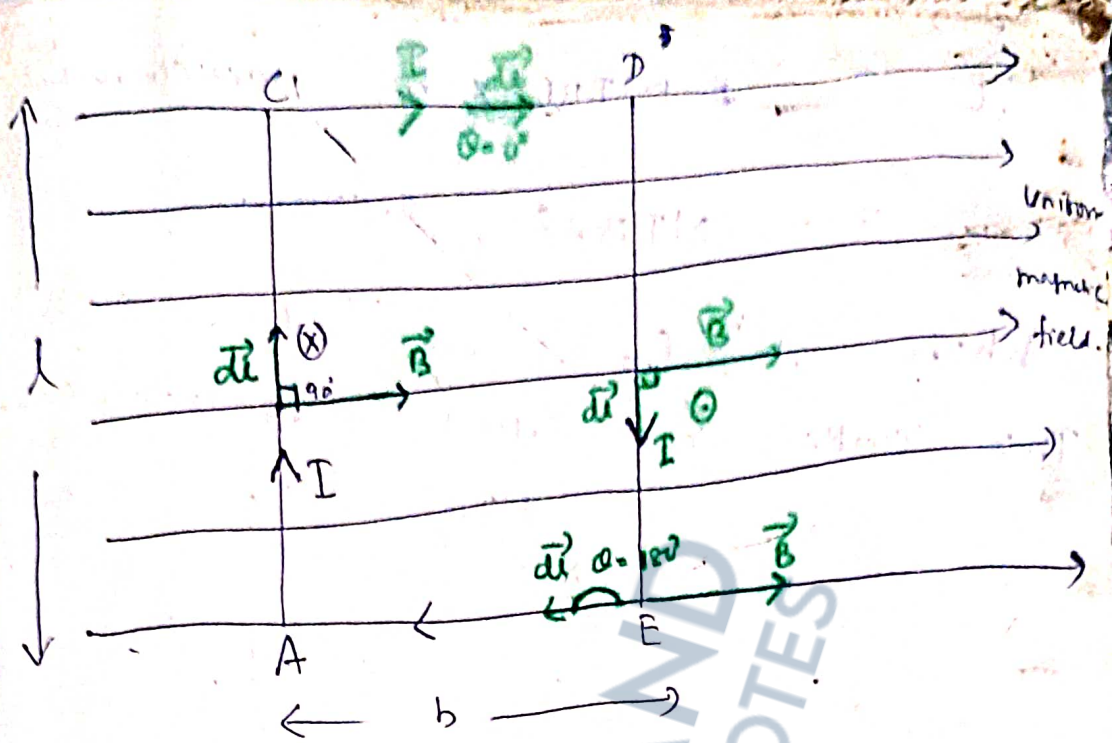 C
I
dl
D
θ = 0°
Uniform
magnetic
field.
l
dl
(X)
90°
B
B
dl
I
I
dl
θ = 180°
B
A
E
b
ND
OTES